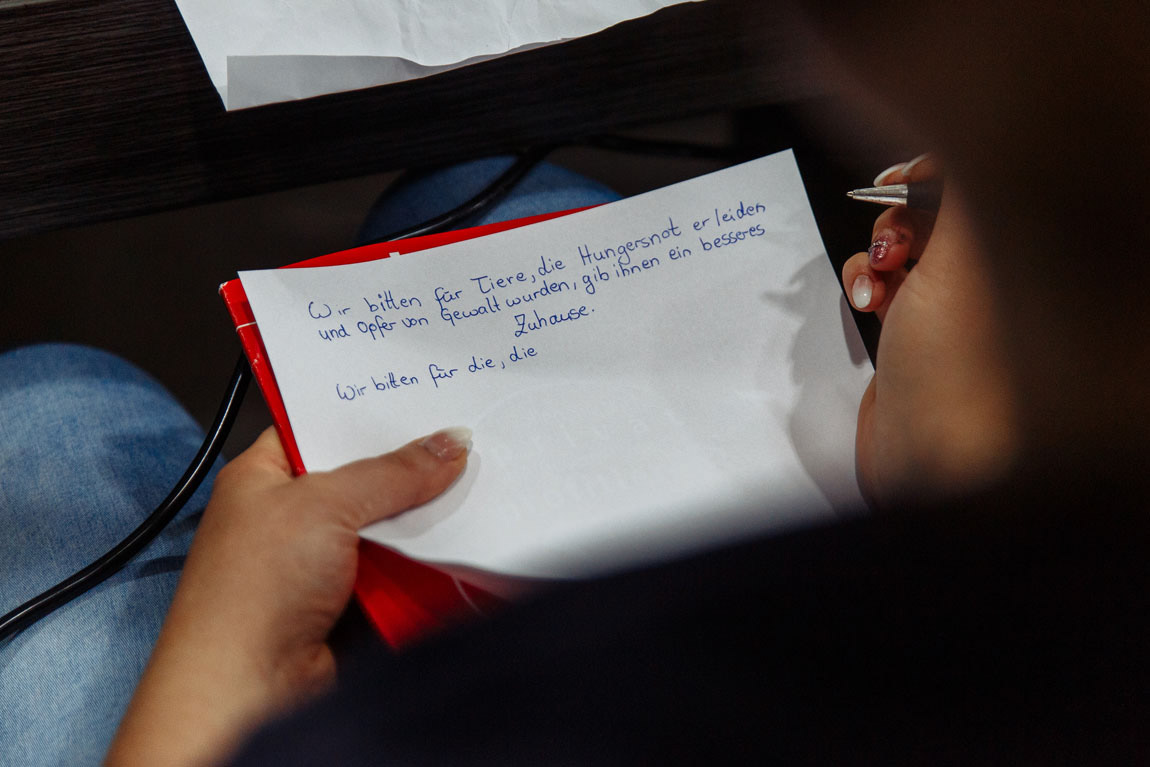 Wir bitten für Tiere, die Hungersnot erleiden
und Opfer von Gewalt wurden, gib ihnen ein besseres
Zuhause.
Wir bitten für die, die